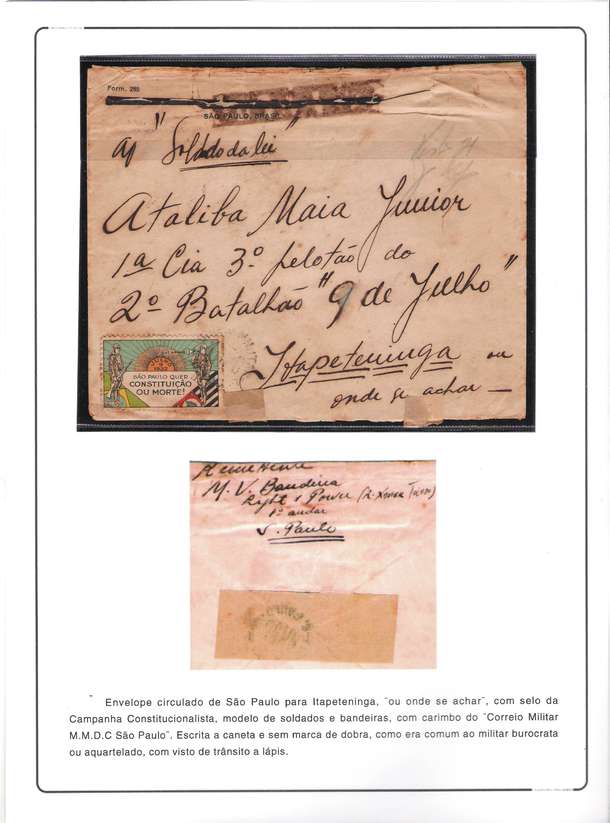 Form. 285
SÃO PAULO, BRASIL
"Soldado da lei"
Ataliba Maia Junior
1ª Cia 3º pelotão do
2º Batalhão "9 de Julho"
Itapeteninga ou
onde se achar —
1932
SÃO PAULO QUER
CONSTITUIÇÃO
OU MORTE!
Remettente
M. V. Bandeira
Light & Power (R. Xavier
1º andar
S. Paulo
S. PAULO
Envelope circulado de São Paulo para Itapeteninga, ¨ou onde se achar¨, com selo da
Campanha Constitucionalista, modelo de soldados e bandeiras, com carimbo do ¨Correio Militar
M.M.D.C São Paulo¨. Escrita a caneta e sem marca de dobra, como era comum ao militar burocrata
ou aquartelado, com visto de trânsito a lápis.